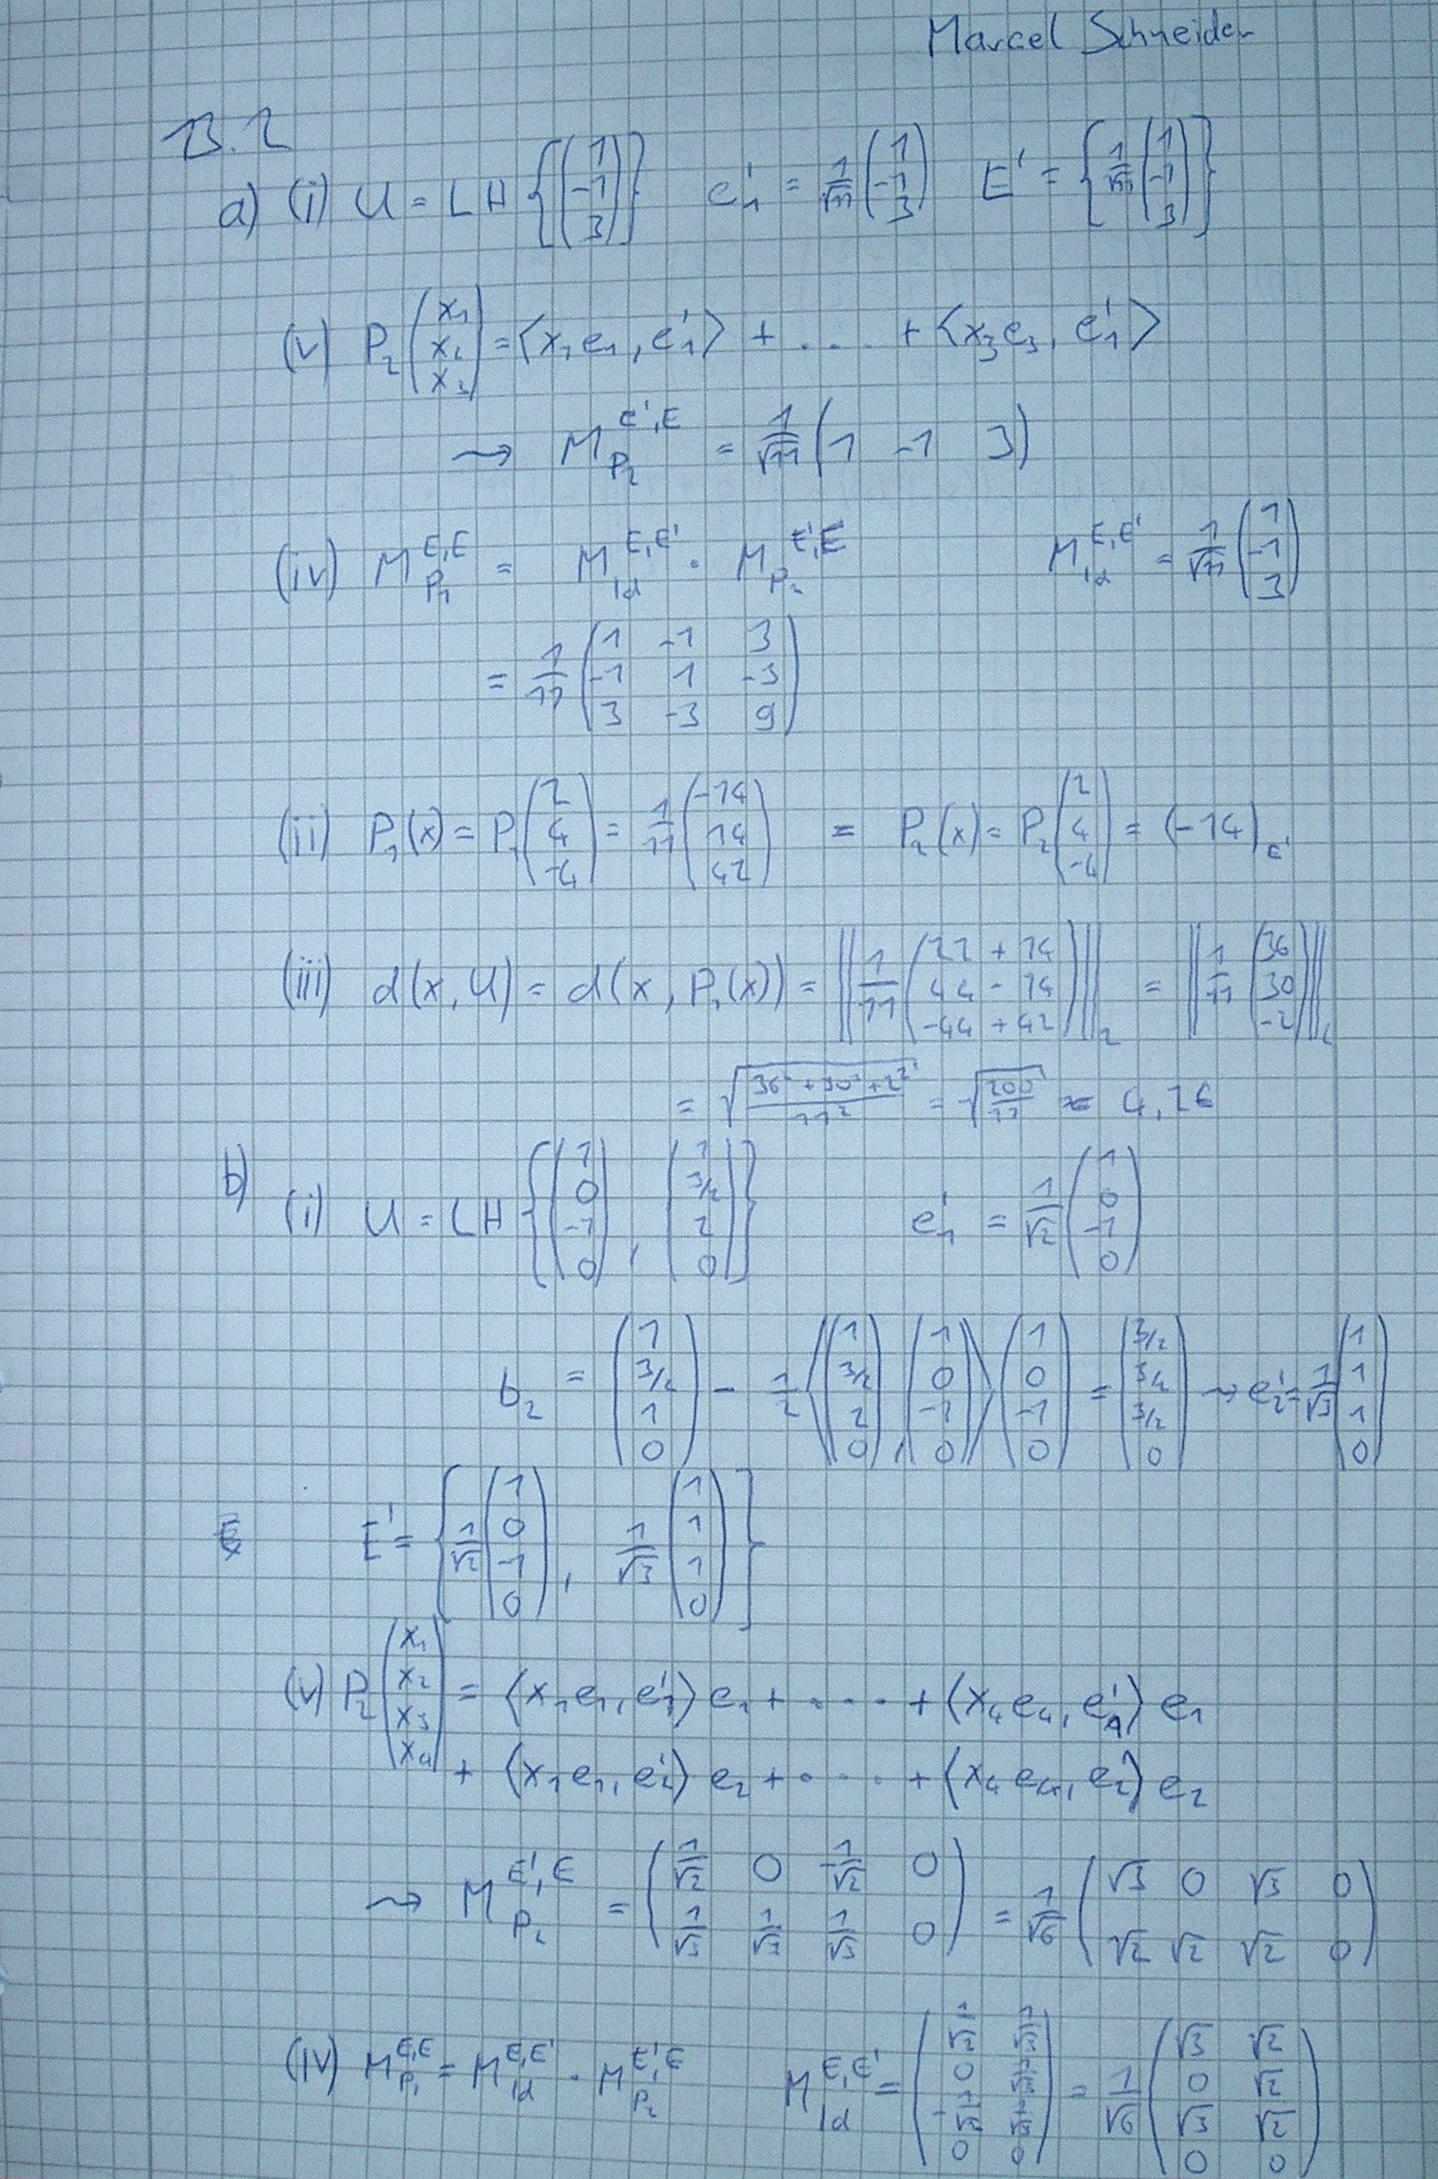 Marcel Schneider
13.2
a) (i) U = LH {(1 -1 3)} e'₁ = 1/√11 (1 -1 3) E' = {1/√11 (1 -1 3)}
(v) P₂ (x₁ x₂ x₃) = ⟨x₁e₁, e'₁⟩ + .... + ⟨x₃e₃, e'₁⟩
⇝ M_P₂^E',E = 1/√11 (1 -1 3)
(iv) M_P₁^E,E = M_Id^E,E' · M_P₂^E',E M_Id^E,E' = 1/√11 (1 -1 3)
= 1/11 (1 -1 3 / -1 1 -3 / 3 -3 9)
(ii) P₁(x) = P₁ (2 4 -4) = 1/11 (-14 14 42) = P₂(x) = P₂ (2 4 -4) = (-14)_E'
(iii) d(x, U) = d(x, P₁(x)) = ‖1/11 (22 + 14 / 44 - 14 / -44 + 42)‖₂ = ‖1/11 (36 30 -2)‖₂
= √((36² + 30² + 2²)/11²) = √(200/11) ≈ 4,26
b) (i) U = LH {(1 0 -1 0), (1 3/2 2 0)} e'₁ = 1/√2 (1 0 -1 0)
b₂ = (1 3/2 1 0) - 1/2 ⟨(1 3/2 2 0), (1 0 -1 0)⟩ (1 0 -1 0) = (3/2 3/2 3/2 0) ⇝ e'₂ = 1/√3 (1 1 1 0)
E' = {1/√2 (1 0 -1 0), 1/√3 (1 1 1 0)}
(v) P₂ (x₁ x₂ x₃ x₄) = ⟨x₁e₁, e'₁⟩ e₁ + .... + ⟨x₄e₄, e'₁⟩ e₁
+ ⟨x₁e₁, e'₂⟩ e₂ + .... + ⟨x₄e₄, e'₂⟩ e₂
⇝ M_P₂^E',E = (1/√2 0 1/√2 0 / 1/√3 1/√3 1/√3 0) = 1/√6 (√3 0 √3 0 / √2 √2 √2 0)
(iv) M_P₁^E,E = M_Id^E,E' · M_P₂^E',E M_Id^E,E' = (1/√2 1/√3 / 0 1/√3 / -1/√2 1/√3 / 0 0) = 1/√6 (√3 √2 / 0 √2 / √3 √2 / 0 0)